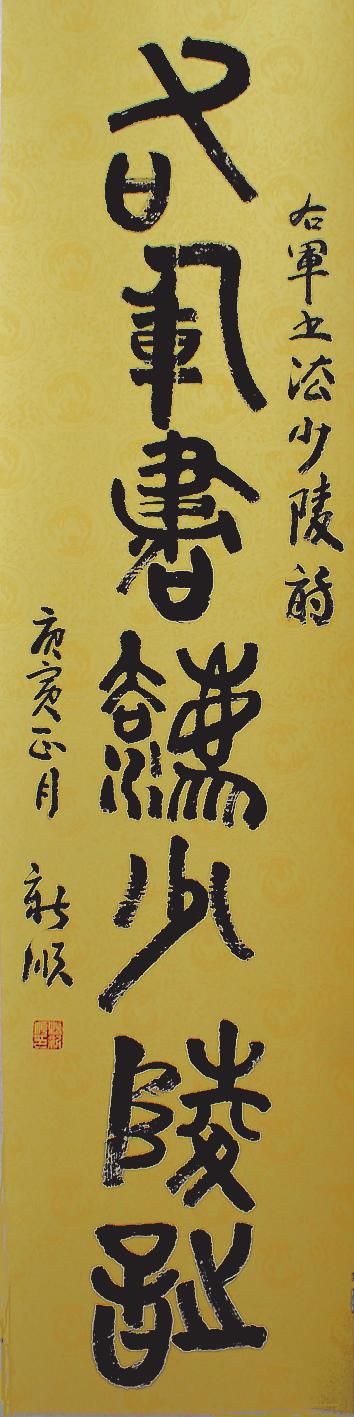 右軍書法少陵詩
右軍書法少陵詩
庚寅正月 新順